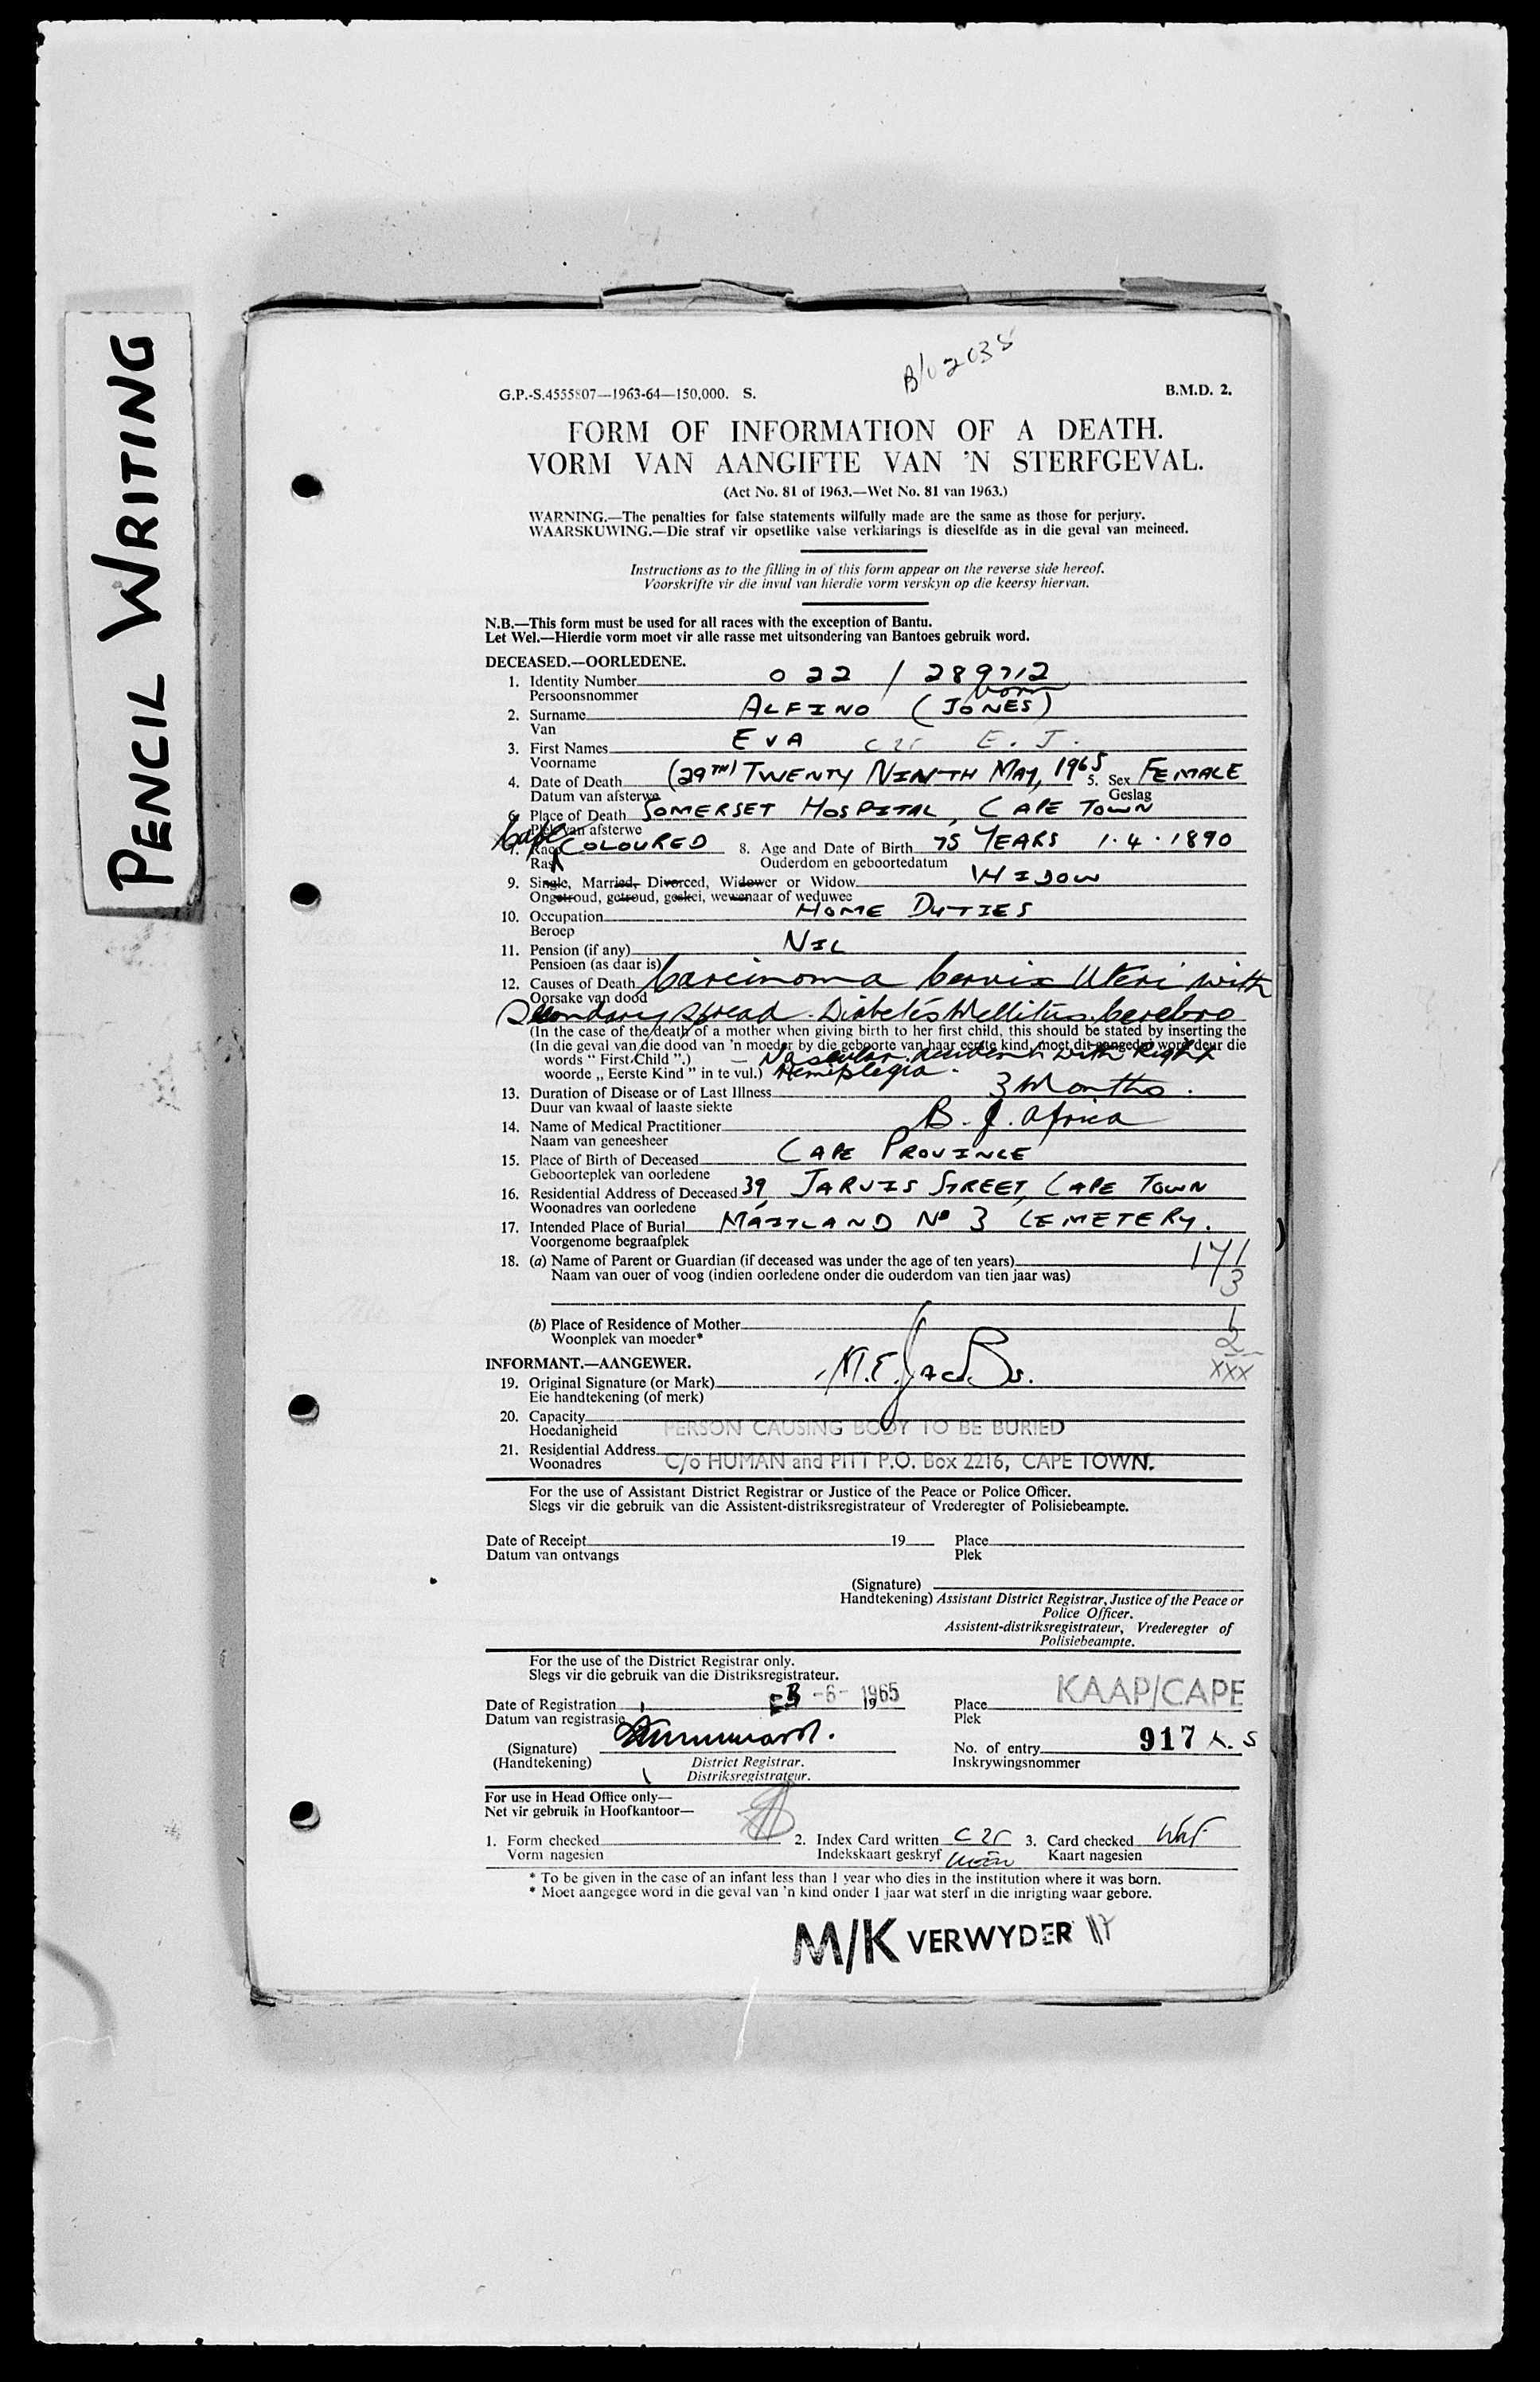 PENCIL WRITING
B/U 2035
G.P.-S.4555807—1963-64—150,000. S. B.M.D. 2.
FORM OF INFORMATION OF A DEATH.
VORM VAN AANGIFTE VAN 'N STERFGEVAL.
(Act No. 81 of 1963.—Wet No. 81 van 1963.)
WARNING.—The penalties for false statements wilfully made are the same as those for perjury.
WAARSKUWING.—Die straf vir opsetlike valse verklarings is dieselfde as in die geval van meineed.
Instructions as to the filling in of this form appear on the reverse side hereof.
Voorskrifte vir die invul van hierdie vorm verskyn op die keersy hiervan.
N.B.—This form must be used for all races with the exception of Bantu.
Let Wel.—Hierdie vorm moet vir alle rasse met uitsondering van Bantoes gebruik word.
DECEASED.—OORLEDENE.
1. Identity Number 022 / 289712
Persoonsnommer born
2. Surname ALFINO (JONES)
Van
3. First Names EVA E. J.
Voorname
4. Date of Death (29TH) TWENTY NINTH MAY, 1965 5. Sex FEMALE
Datum van afsterwe Geslag
6. Place of Death SOMERSET HOSPITAL, CAPE TOWN
Plek van afsterwe
7. Race Cape COLOURED 8. Age and Date of Birth 75 YEARS 1.4.1890
Ras Ouderdom en geboortedatum
9. Single, Married, Divorced, Widower or Widow WIDOW
Ongetroud, getroud, geskei, wewenaar of weduwee
10. Occupation HOME DUTIES
Beroep
11. Pension (if any) NIL
Pensioen (as daar is)
12. Causes of Death Carcinoma Cervix Uteri with
Oorsake van dood
Secondary spread. Diabetes Mellitus. Cerebro
(In the case of the death of a mother when giving birth to her first child, this should be stated by inserting the
(In die geval van die dood van 'n moeder by die geboorte van haar eerste kind, moet dit aangedui word deur die
words " First Child ".) – Vascular accident with Right
woorde „ Eerste Kind " in te vul.) Hemiplegia.
13. Duration of Disease or of Last Illness 3 Months.
Duur van kwaal of laaste siekte
14. Name of Medical Practitioner B. J. Africa
Naam van geneesheer
15. Place of Birth of Deceased CAPE PROVINCE
Geboorteplek van oorledene
16. Residential Address of Deceased 39, JARVIS STREET, CAPE TOWN
Woonadres van oorledene
17. Intended Place of Burial MAITLAND No 3 CEMETERY.
Voorgenome begraafplek
18. (a) Name of Parent or Guardian (if deceased was under the age of ten years) 171
Naam van ouer of voog (indien oorledene onder die ouderdom van tien jaar was) 3
(b) Place of Residence of Mother 1
Woonplek van moeder* 2
INFORMANT.—AANGEWER. XXX
19. Original Signature (or Mark) M.E. Jacobs.
Eie handtekening (of merk)
20. Capacity
Hoedanigheid PERSON CAUSING BODY TO BE BURIED
21. Residential Address
Woonadres C/o HUMAN and PITT P.O. Box 2216, CAPE TOWN.
For the use of Assistant District Registrar or Justice of the Peace or Police Officer.
Slegs vir die gebruik van die Assistent-distriksregistrateur of Vrederegter of Polisiebeampte.
Date of Receipt 19 Place
Datum van ontvangs Plek
(Signature)
Handtekening) Assistant District Registrar, Justice of the Peace or
Police Officer.
Assistent-distriksregistrateur, Vrederegter of
Polisiebeampte.
For the use of the District Registrar only.
Slegs vir die gebruik van die Distriksregistrateur.
Date of Registration -3 -6- 1965 19 Place KAAP/CAPE
Datum van registrasie Plek
(Signature) No. of entry 917 K.S
(Handtekening) District Registrar. Inskrywingsnommer
Distriksregistrateur.
For use in Head Office only—
Net vir gebruik in Hoofkantoor—
1. Form checked 2. Index Card written 3. Card checked
Vorm nagesien Indekskaart geskryf Kaart nagesien
* To be given in the case of an infant less than 1 year who dies in the institution where it was born.
* Moet aangegee word in die geval van 'n kind onder 1 jaar wat sterf in die inrigting waar gebore.
M/K VERWYDER